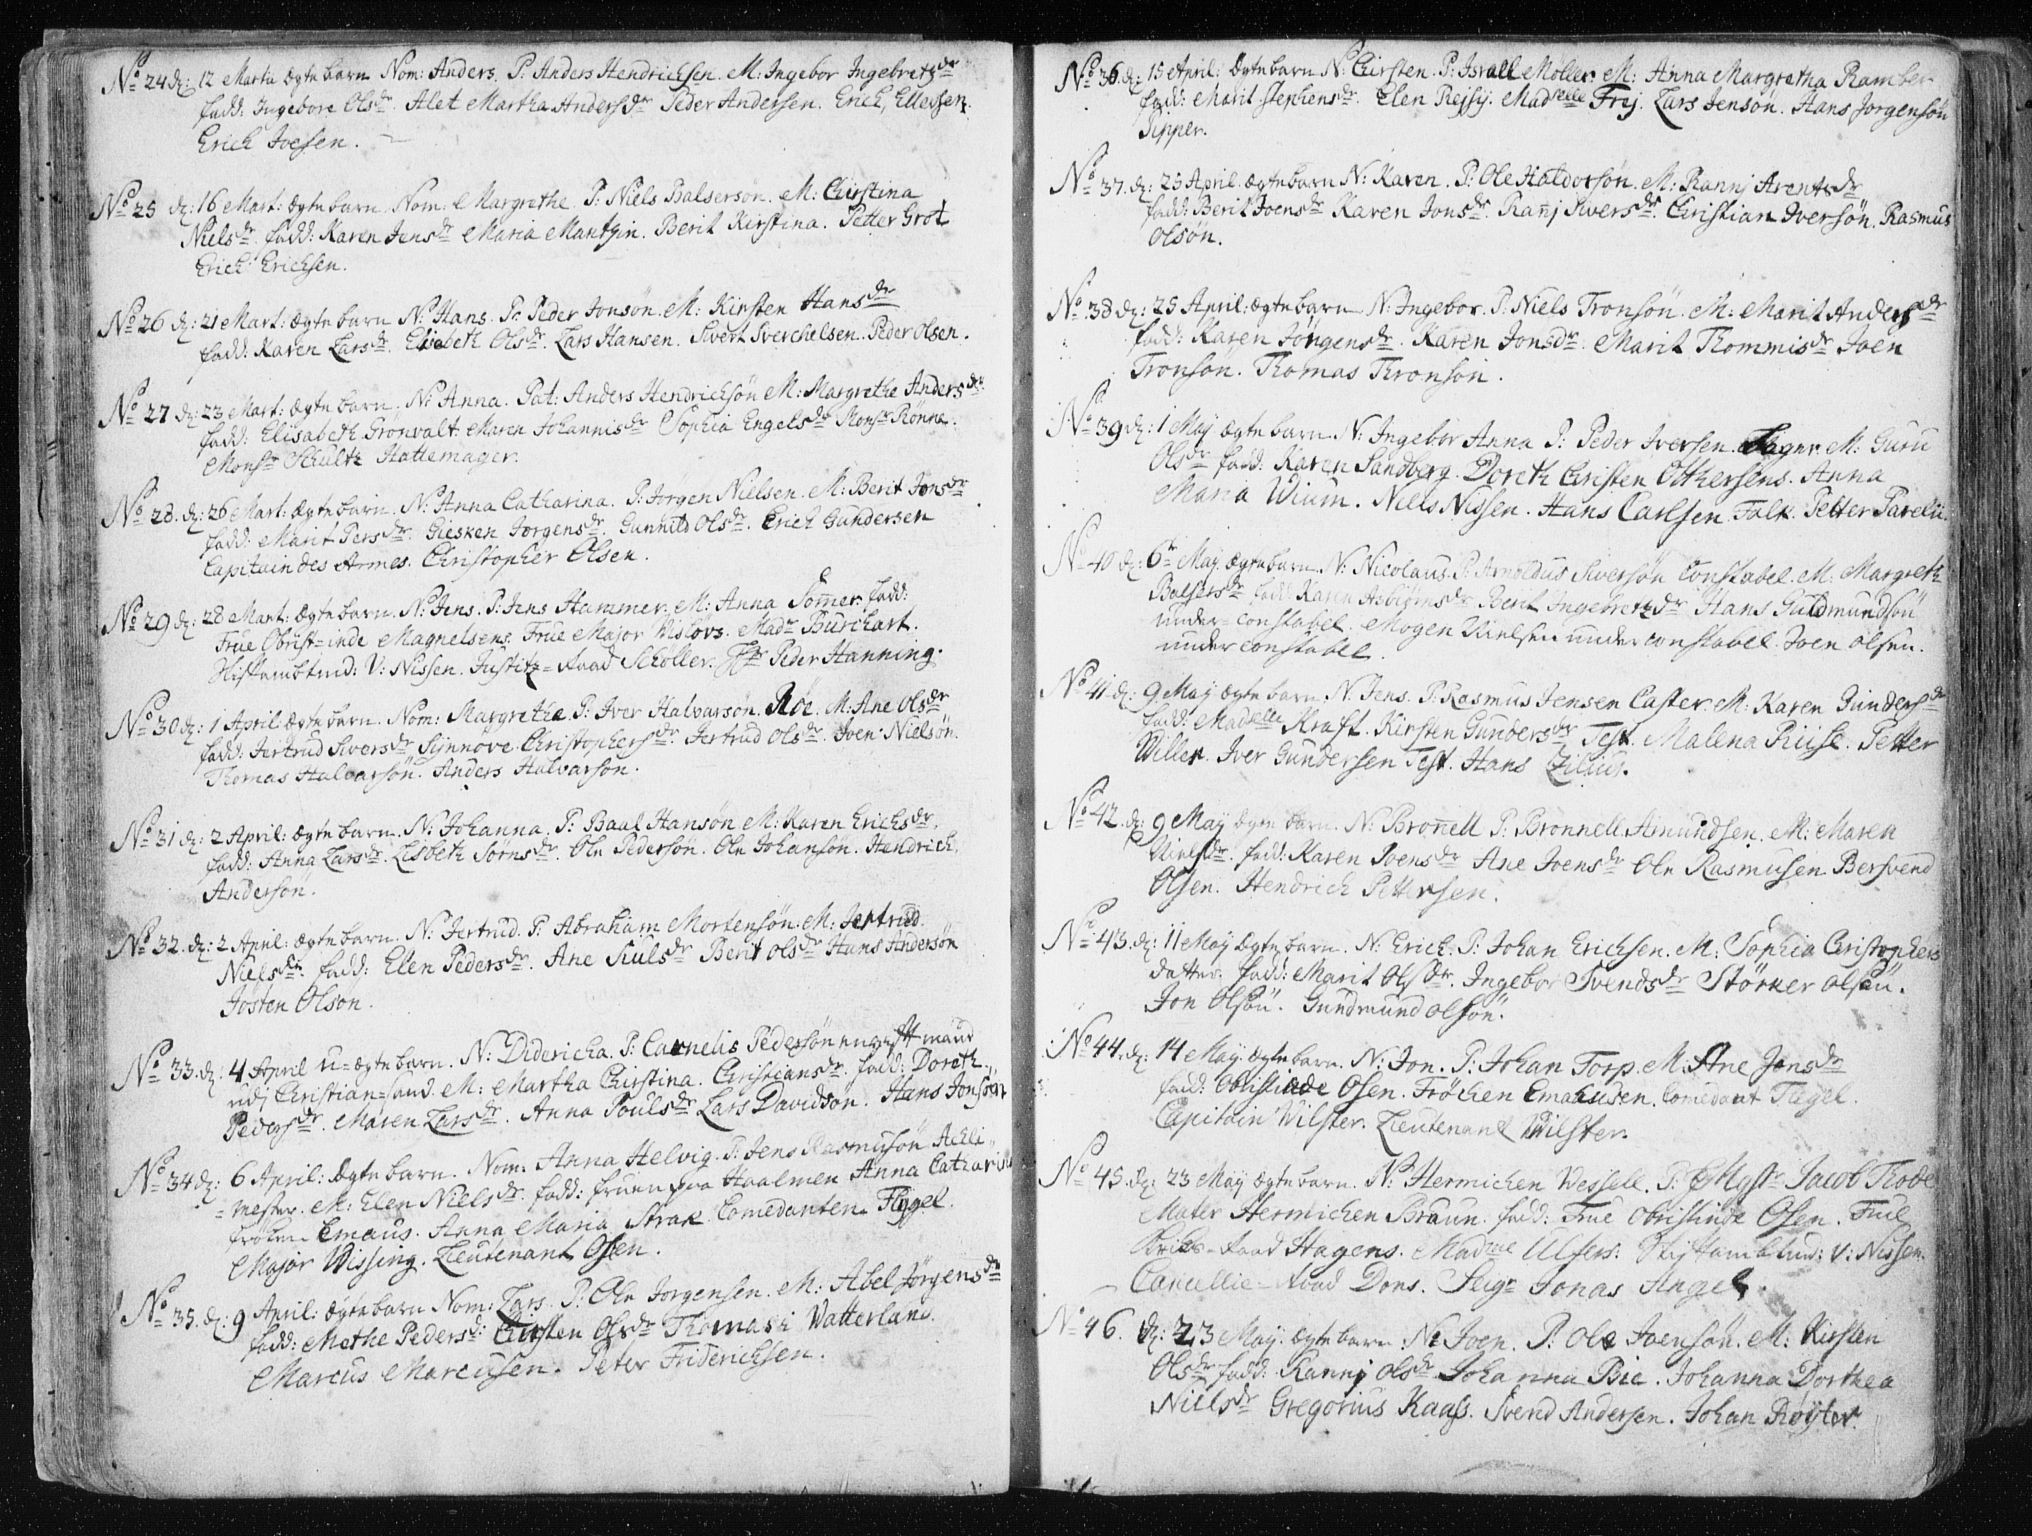 No 24 d: 12 Martii ægte barn Nom: Anders. P: Anders Hendrichsen. M: Ingebor Ingebretzdr
fadd: Ingebore Olsdr. Alet Martha Andersdr Peder Andersen. Erich Ellefsen.
Erich Joesen.
No 25 d: 16 Mart: ægte barn Nom: Margrethe P: Niels Balsersøn. M: Chirstina
Nielsdr. fadd: Karen Jensdr Maria Mantzin. Berit Kirstina. Petter Grot
Erich Erichsen.
No 26 d: 21 Mart: ægte barn N: Hans. P: Peder Jonsøn. M: Kirsten Hansdr
fadd: Karen Larsdr. Elisebeth Olsdr. Lars Hansen. Sivert Sverchelsen. Peder Olsen.
No 27 d: 23 Mart: ægte barn. N: Anna. Pat: Anders Hendrichsøn M: Margrethe Andersdr.
fadd: Elisabeth Gronvalt. Maren Johannisdr Sophia Engelsdr Monsr Rønne.
Monsr Schultz Hattemager.
No 28. d: 26 Mart: ægte barn. N: Anna Catharina. P: Jorgen Nielsen. M: Berit Jonsdr
fadd: Marit Persdr. Giesken Jorgensdr. Gunnild Olsdr. Erich Gundersen
Capitain des Armes. Christopher Olsen.
No 29 d: 28 Mart: ægte barn. N: Jens. P: Jens Hammer. M: Anna Somer. fadd:
Frue Obrist-inde Magnelsens. Frue Major Wisløvs. Madr Burchart.
Stiftambtmd: V: Nissen. Justitz-Raad Scholler. Hr Peder Hanning.
No 30 d: 1 April ægte barn. Nom: Margrethe. P: Iver Halvarsøn. Röe. M: Ane Olsdr
fadd: Jertrud Siversdr Synnøve Christophersdr. Jertrud Olsdr. Joen Nielsøn.
Thomas Halvarsøn. Anders Halvarsøn.
No 31 d: 2 April: ægte barn. N: Johanna. P: Baal Hansøn M: Karen Erichsdr.
fadd: Anna Larsdr. Lisbeth Sørnsdr. Ole Pedersøn. Ole Johansøn. Hendrich
Andersøn.
No 32. d: 2 April: ægte barn. N: Jertrud. P: Abraham Mortensøn. M: Jertrud
Nielsdr. fadd: Elen Pedersdr. Ane Siulsdr Berit Olsdr Hans Andersøn
Josten Olsøn.
No 33. d: 4 April u-ægte barn. N: Didericha. P: Carnelis Pedersøn en gift mand
udj Christian-sund. M: Martha Chirstina. Christiansdr. fadd: Doreth
Pedersdr. Maren Larsdr. Anna Poulsdr Lars Davidsøn. Hans Jonsøn
No 34 d: 6 April: ægte barn. Nom: Anna Helvig. P: Jens Rasmusøn Acki-
-mester. M: Elen Nielsdr. fadd: fruen paa Haalmen Anna Catharin
frøken Emaus. Anna Maria Strak. Comedanten Flygel.
Major Wissing. Lieutenant Osen.
No 35. d: 9 April: ægte barn Nom: Lars. P: Ole Jorgensen. M: Abel Jørgensdr
fadd: Methe Pedersd: Chirsten Olsdr Thomas i Vatterland.
Marcus Marcusen. Peter Friderichsen.
No 36. d: 15 April: ægte barn N: Chirsten. P: Israel Møller. M: Anna Margretha Ramber
fadd: Marit Stephensdr. Elen Rejsij. Madselle Frej. Lars Jensøn. Hans Jorgensøn
Sipper.
No 37. d: 25 April. ægte barn N: Karen. P: Ole Haldorsøn. M: Rannj Arentsdr
fadd: Berit Joensdr Karen Jonsdr. Rannj Siversdr. Christian Iversøn. Rasmus
Olsøn.
No 38 d: 25 April: ægte barn N: Ingebor. P: Niels Tronsøn. M: Marit Andersdr
fadd: Karen Jørgensdr. Karen Jonsdr. Marit Thommisdr Joen
Tronsøn. Thomas Thronsøn.
No 39 d: 1 Maj ægte barn. N: Ingebor Anna P: Peder Iversen. Bager. M: Guru
Olsdr fadd: Karen Sandberg. Doreth Chirsten Othersens. Anna
Maria Wium. Niels Nissen. Hans Carlsen Falk. Petter Parelii.
No 40 d: 6tr Maj ægte barn N: Nicolaus. P: Arnoldus Siversøn Constabel. M: Margreth
Balsersdr fadd: Karen Asbiørnsdr Berit Ingebretzdr Hans Guldmundsøn
under-constabel. Mogen Nielsen under constabel. Joen Olsen.
under constabel.
No 41 d: 9 Maj ægte barn N: Jens. P: Rasmus Jensen Caster. M: Karen Gundersdr
fadd: Madselle Kraft. Kirsten Gundersdr Test. Malena Riise. Petter
Willer. Iver Gundersen Test. Hans Zilius.
No 42. d: 9 Maij ægte barn. N: Bronell P: Bronnell Amundsen. M: Maren
Nielsdr. fadd: Karen Joensdr Ane Joensdr Ole Rasmusen Bersvend
Olsen. Hendrich Pettersen.
No 43. d: 11 Maij ægte barn. N: Erich. P: Johan Erichsen. M: Sophia Christophers
datter. fadd: Marit Olsdr. Ingebor Svendsdr Størker Olsøn.
Jon Olsøn. Gundmund Olsøn.
No 44. d: 14 Maij: ægte barn. N: Jon. P: Johan Torp. M: Ane Jonsdr
fadd: Obristinde Osen. Frøchen Emahusen. Comedant Flegel.
Capitain Wilster. Lieutenant Wilster.
No 45. d: 23 Maij ægte barn. N: Hermichen Wessell. P: Mgstr Jacob Thode
Mater Hermichen Bruun. fadd: Frue Obristinde Osen. Frue
Krigs-Raad Hagens. Madme Ulsers. Stiftambtmd: V: Nissen.
Cancellie-Raad Dons. Seigr Jonas Angel.
No 46. d: 23 Maij. ægte barn N: Joen. P: Ole Joensøn. M: Kirsten
Olsdr fadd: Rannj Olsdr Johanna Bie. Johanna Dorthea
Nielsdr Gregorius Kaass. Svend Andersen. Johan Røyter.